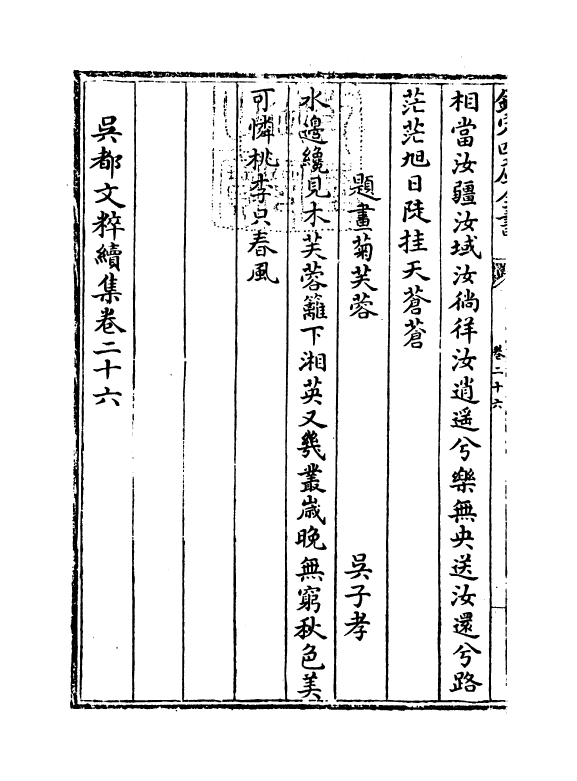 欽定四庫全書
卷二十六
相當汝疆汝域汝徜徉汝逍遥兮樂無央送汝還兮路
茫茫旭日陡挂天蒼蒼
題畫菊芙蓉
吳子孝
水邊纔見木芙蓉籬下湘英又幾叢歳晚無窮秋色美
可憐桃李只春風
吳都文粹續集卷二十六